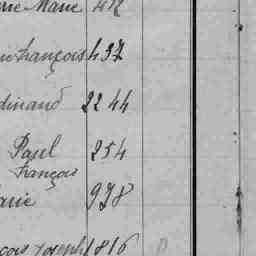 rie Marie 412
François 437
dinand 2244
Paul 254
François
arie 978
çois Joseph 1816